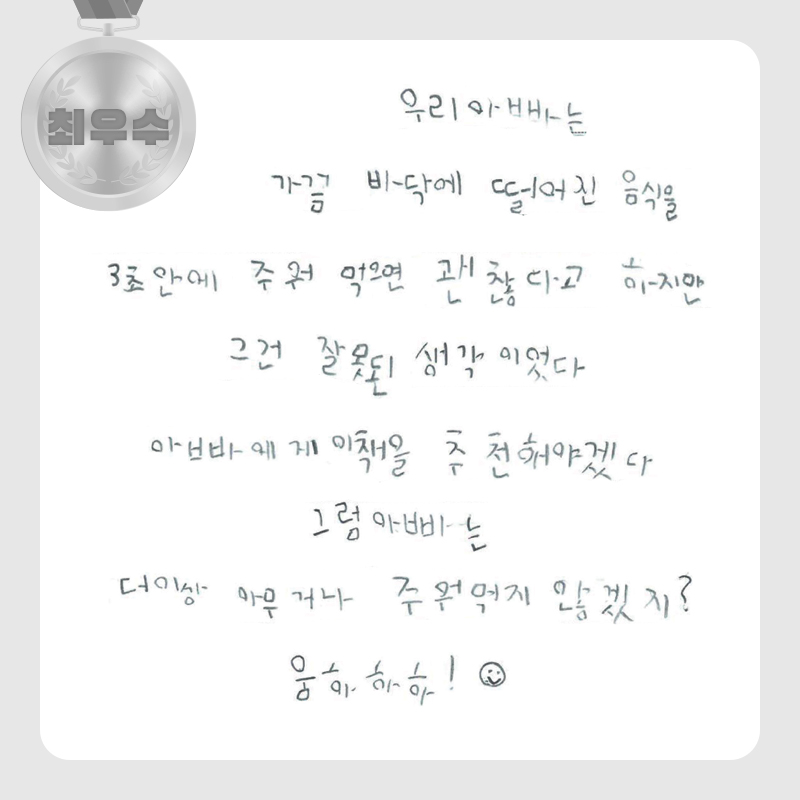 최우수
우리 아빠는
가끔 바닥에 떨어진 음식을
3초안에 주워 먹으면 괜찮다고 하지만
그건 잘못된 생각이었다
아빠에게 이책을 추천해야겠다
그럼 아빠는
더이상 아무거나 주워먹지 않겠지?
움하하하!